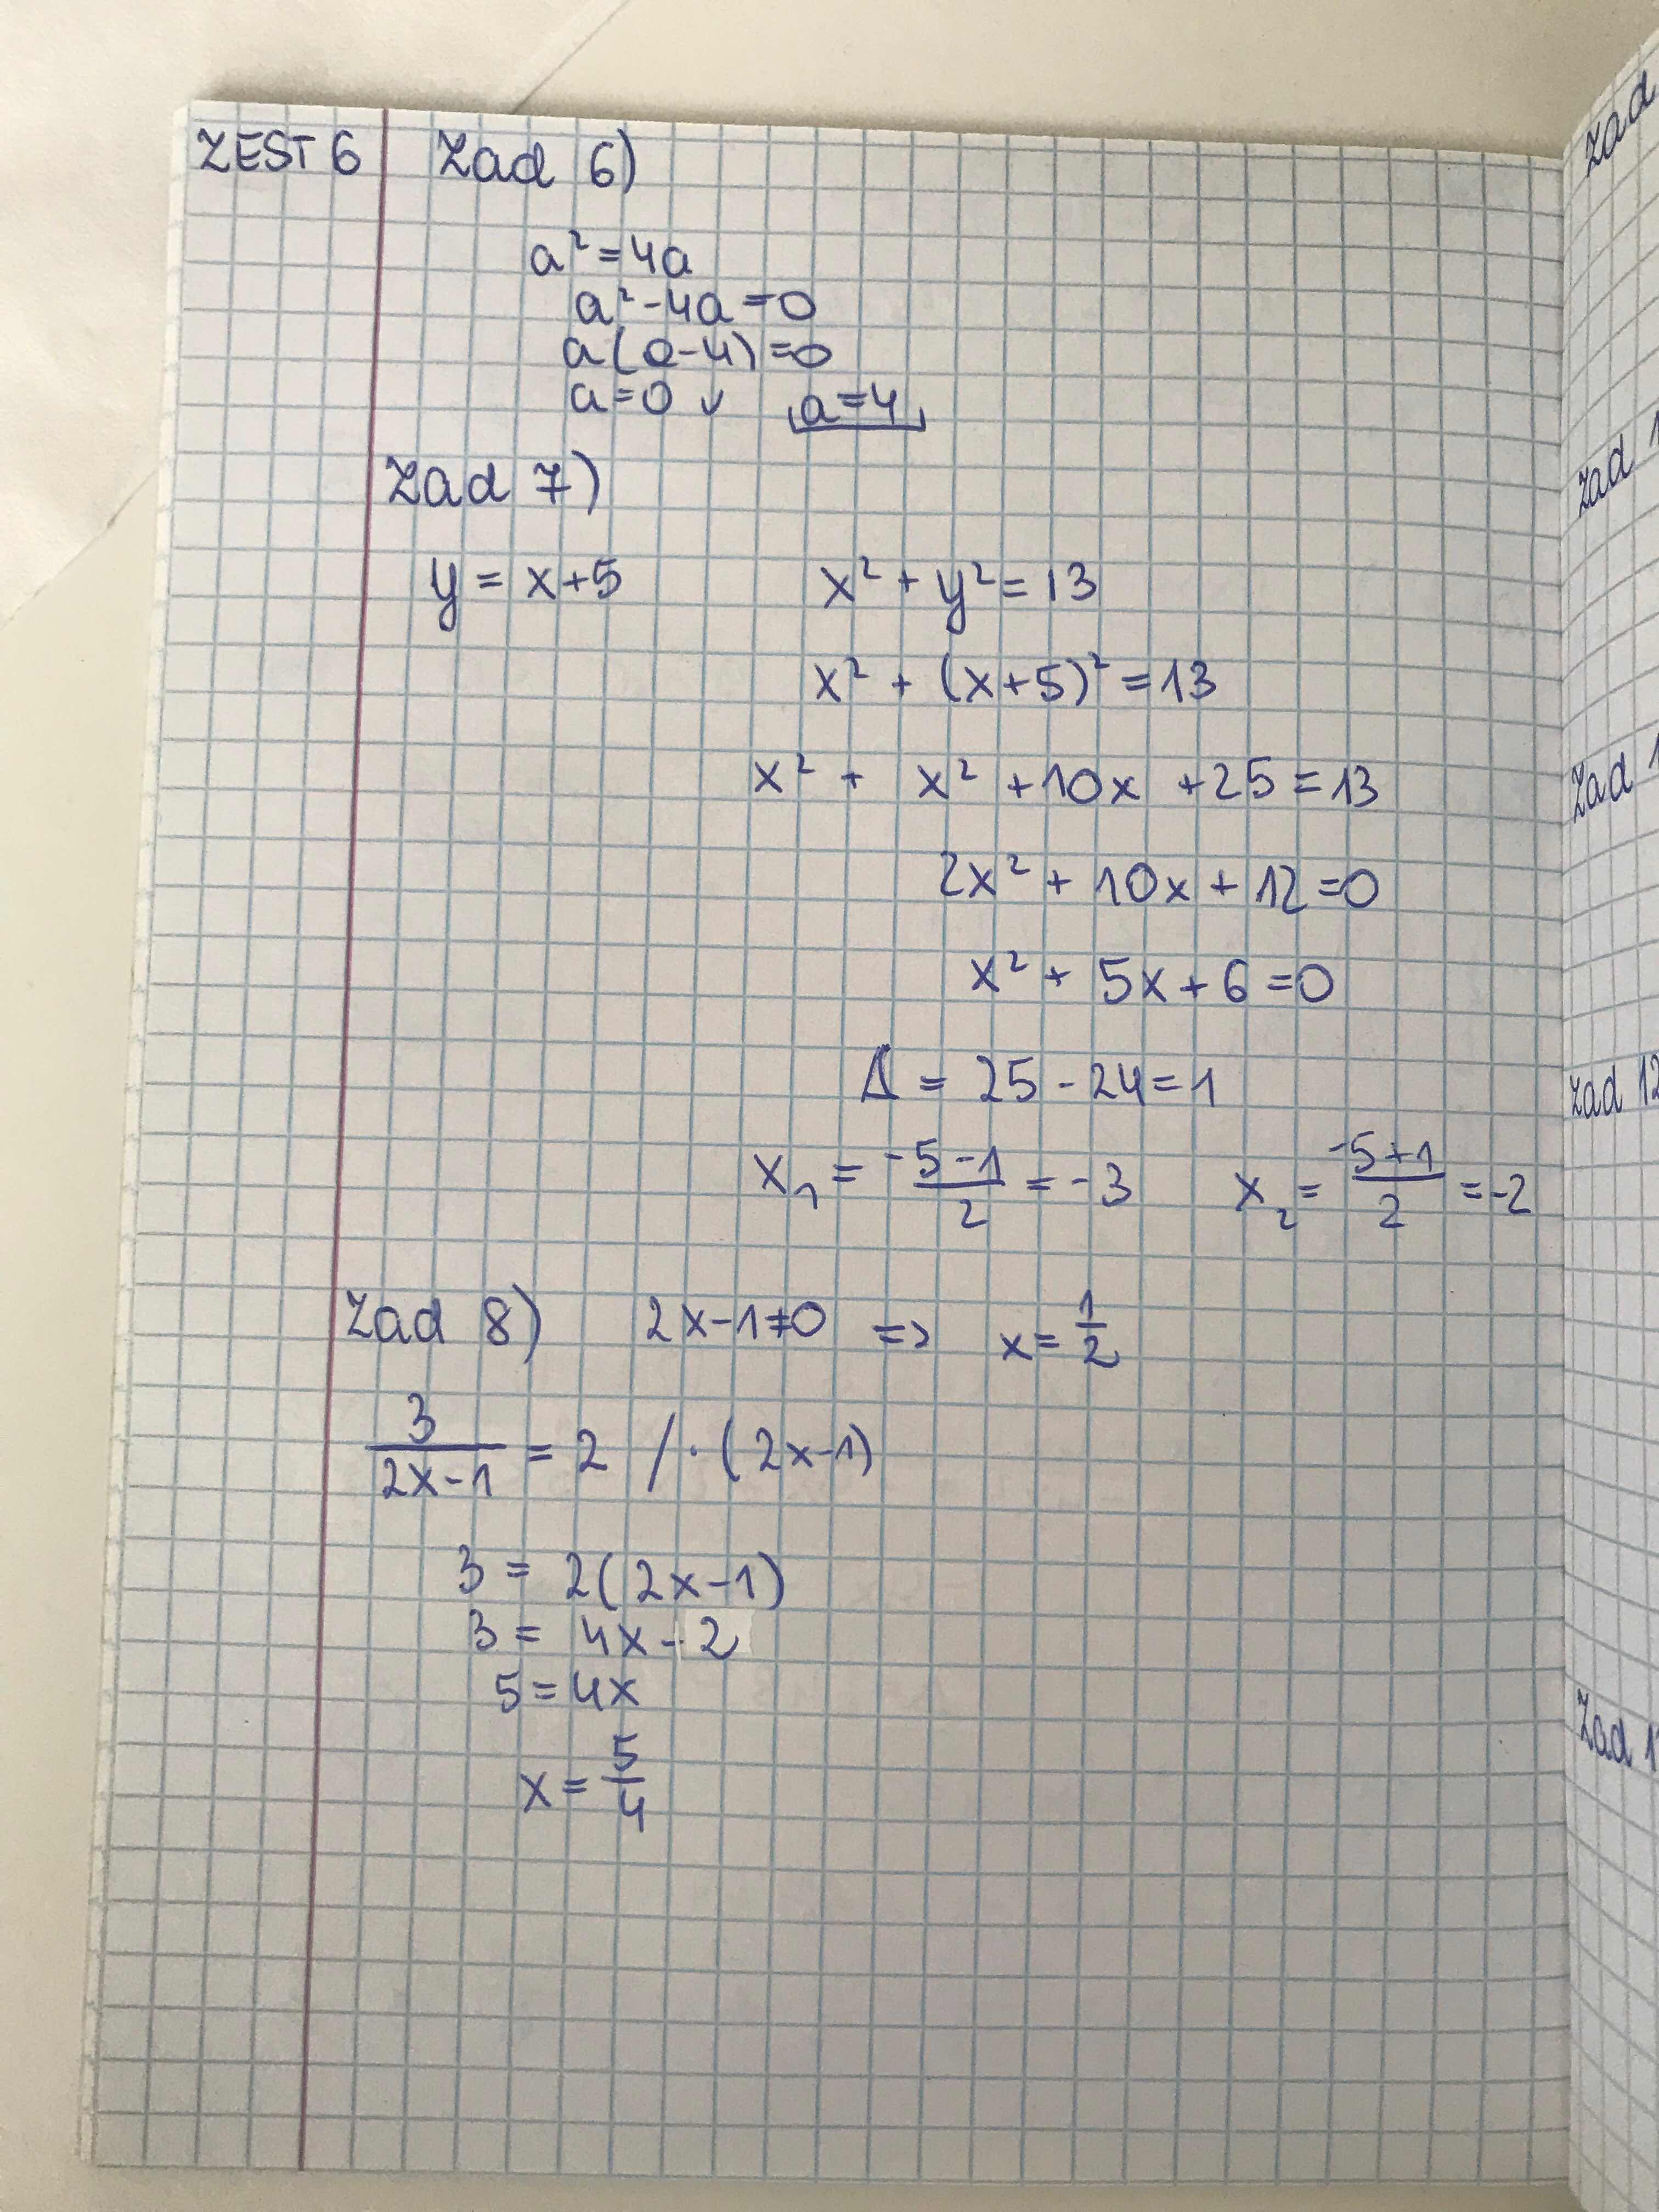 ZEST 6 Zad 6)
a² = 4a
a² - 4a = 0
a(a-4) = 0
a = 0 ∨ a = 4
Zad 7)
y = x+5 x² + y² = 13
x² + (x+5)² = 13
x² + x² + 10x + 25 = 13
2x² + 10x + 12 = 0
x² + 5x + 6 = 0
Δ = 25 - 24 = 1
x₁ = (-5-1)/2 = -3 x₂ = (-5+1)/2 = -2
Zad 8) 2x-1≠0 => x = 1/2
3/(2x-1) = 2 / · (2x-1)
3 = 2(2x-1)
3 = 4x - 2
5 = 4x
x = 5/4
zad
zad 1
zad 1
zad 12
zad 1